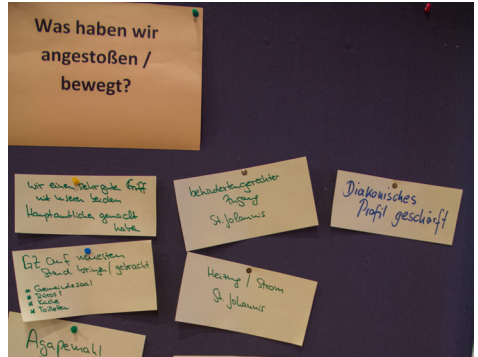 Was haben wir
angestoßen /
bewegt?
wir einen sehr gute Griff
mit unseren beiden
Hauptamtlichen gemacht
haben
behindertengerechter
Zugang
St. Johannis
Diakonisches
Profil geschärft
GZ auf neuesten
Stand bringen / gebracht
* Gemeindesaal
* Büros!
* Küche
* Toiletten
Heizung / Strom
St. Johannis
Agapemahl